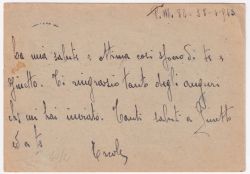 P.M. 88 - 28-4-943
La mia salute è ottima così spero di te e
Ginetto. Ti ringrazio tanto degli auguri
che mi hai inviato. Tanti saluti a Ginetto
e a te
Ercole